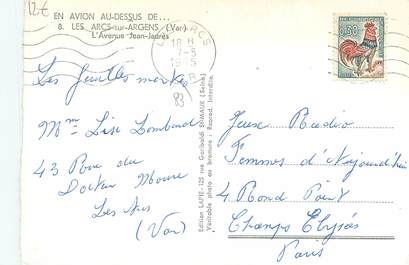 12€
EN AVION AU-DESSUS DE...
8. LES ARCS-sur-ARGENS (Var)
L'Avenue Jean-Jaurès
LES ARCS
18 H
7-5
1965
0,30
Les feuilles mortes
83
Mme Lise Lombard
43 Rue du
Docteur
Les Arcs
(Var)
Edition LAPIE - 125 rue Garibaldi St-MAUR (Seine)
Véritable photo au bromure - Reprod. Interdite.
Jeux Radio
Femmes d'Aujourd'hui
4 Rond Point
Champs Elysées
Paris